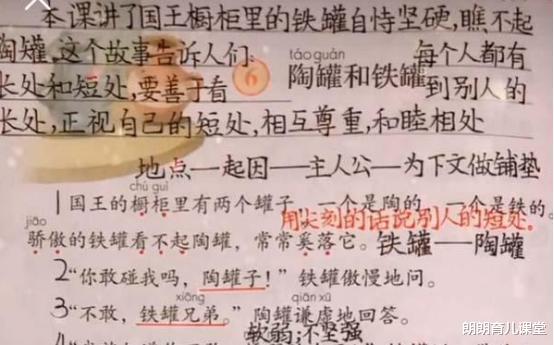 本课讲了国王橱柜里的铁罐自恃坚硬,瞧不起
陶罐,这个故事告诉人们:每个人都有
táo guàn
6 陶罐和铁罐
长处和短处,要善于看到别人的
长处,正视自己的短处,相互尊重,和睦相处
地点—起因—主人公—为下文做铺垫
chú guì
1 国王的橱柜里有两个罐子,一个是陶的,一个是铁的。
用尖刻的话说别人的短处。
jiāo
骄傲的铁罐看不起陶罐,常常奚落它。铁罐——陶罐
2 “你敢碰我吗,陶罐子!”铁罐傲慢地问。
xiōng qiān xū
3 “不敢,铁罐兄弟。”陶罐谦虚地回答。
软弱;不坚强
朗朗育儿课堂